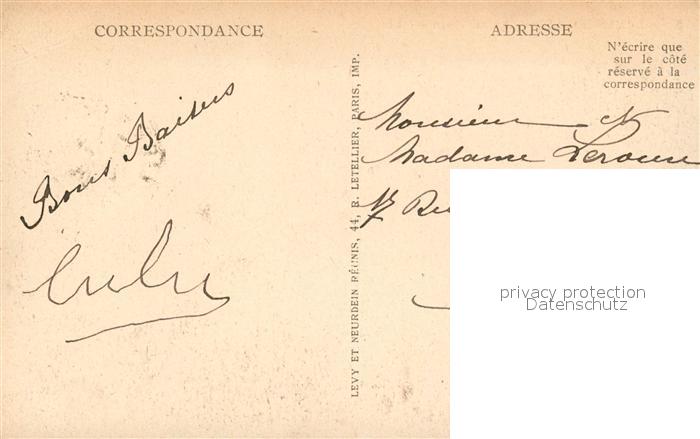 CORRESPONDANCE
ADRESSE
N'écrire que
sur le côté
réservé à la
correspondance
Bons Baisers
Lulu
LEVY ET NEURDEIN RÉUNIS, 44, R. LETELLIER, PARIS, IMP.
Monsieur et
Madame
privacy protection
Datenschutz